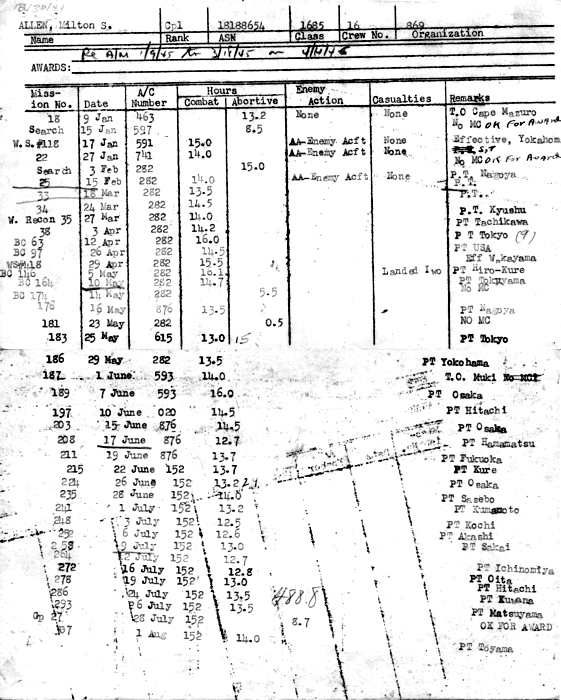 ALLEN, Milton S. Cpl 18188654 1685 16 869
Name Rank ASN Class Crew No. Organization
Re A/M 1/9/45 to 3/18/45 on 4/4/45
AWARDS:
Miss- A/C Hours Enemy
ion No. Date Number Combat Abortive Action Casualties Remarks
18 9 Jan 463 13.2 None None T.O Cape Mazuro
Search 15 Jan 597 8.5 No MC OK FOR AWARD
W.S.#118 17 Jan 591 15.0 AA-Enemy Acft None Effective, Yokohom
22 27 Jan 741 14.0 AA-Enemy Acft None
No MC OK FOR AWARD
Search 3 Feb 282 15.0
25 15 Feb 282 14.0 AA-Enemy Acft None P.T. Nagoya
33 18 Mar 282 13.5 P.T.
34 24 Mar 282 14.5 P.T..
W. Recon 35 27 Mar 282 14.0 P.T. Kyushu
38 3 Apr 282 14.2 PT Tachikawa
BC 63 12 Apr 282 16.0 P T Tokyo (9)
BC 97 26 Apr 282 14.5 PT USA
WS#418 25 Apr 282 15.5 Eff W.kayama
BC 146 5 May 282 16.1 Landed Iwo PT Hiro-Kure
BC 164 10 May 282 14.7 PT Tokuyama
BC 174 14 May 282 5.5 No MC
176 16 May 876 13.5 PT Nagoya
181 23 May 282 0.5 NO MC
183 25 May 615 13.0 15 PT Tokyo
186 29 May 282 13.5 PT Yokohama
187 1 June 593 14.0 T.O. Muki No MCI
189 7 June 593 16.0 PT Osaka
197 10 June 020 14.5 PT Hitachi
203 15 June 876 14.5 PT Osaka
208 17 June 876 12.7 PT Hamamatsu
211 19 June 876 13.7 PT Fukuoka
215 22 June 152 13.7 PT Kure
224 26 June 152 13.2 PT Osaka
235 28 June 152 14.0 PT Sasebo
241 1 July 152 13.2 PT Kumamoto
248 3 July 152 12.5 PT Kochi
252 6 July 152 12.6 PT Akashi
258 9 July 152 13.0 PT Sakai
264 12 July 152 12.7
272 16 July 152 12.8 PT Ichinomiya
278 19 July 152 13.0 PT Oita
286 24 July 152 13.5 488.8 PT Hitachi
293 26 July 152 13.5 PT Kuwana
Gp 27 28 July 152 8.7 PT Matsuyama
OK FOR AWARD
307 1 Aug 152 14.0 PT Toyama